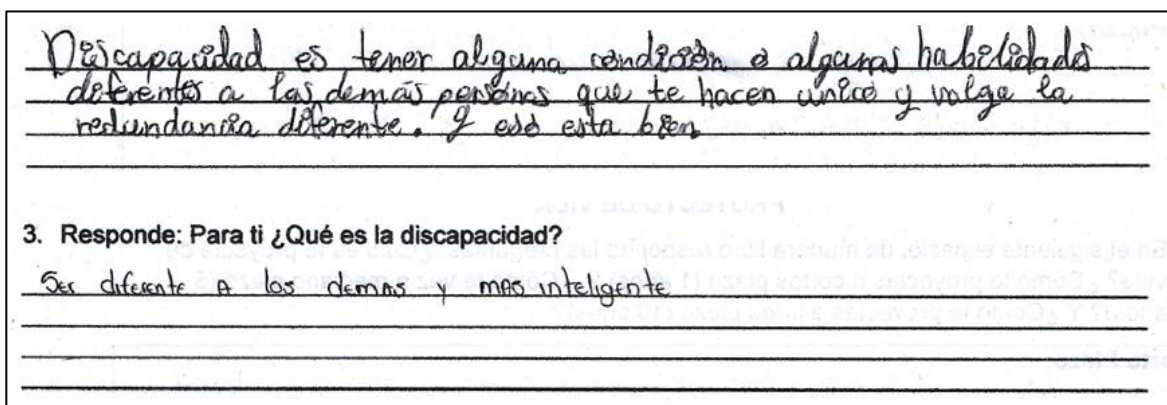 Discapacidad es tener alguna condición o algunas habilidades
diferentes a las demás personas que te hacen único y valga la
redundancia diferente. Y eso esta bien
3. Responde: Para ti ¿Qué es la discapacidad?
Ser diferente A los demas y mas inteligente